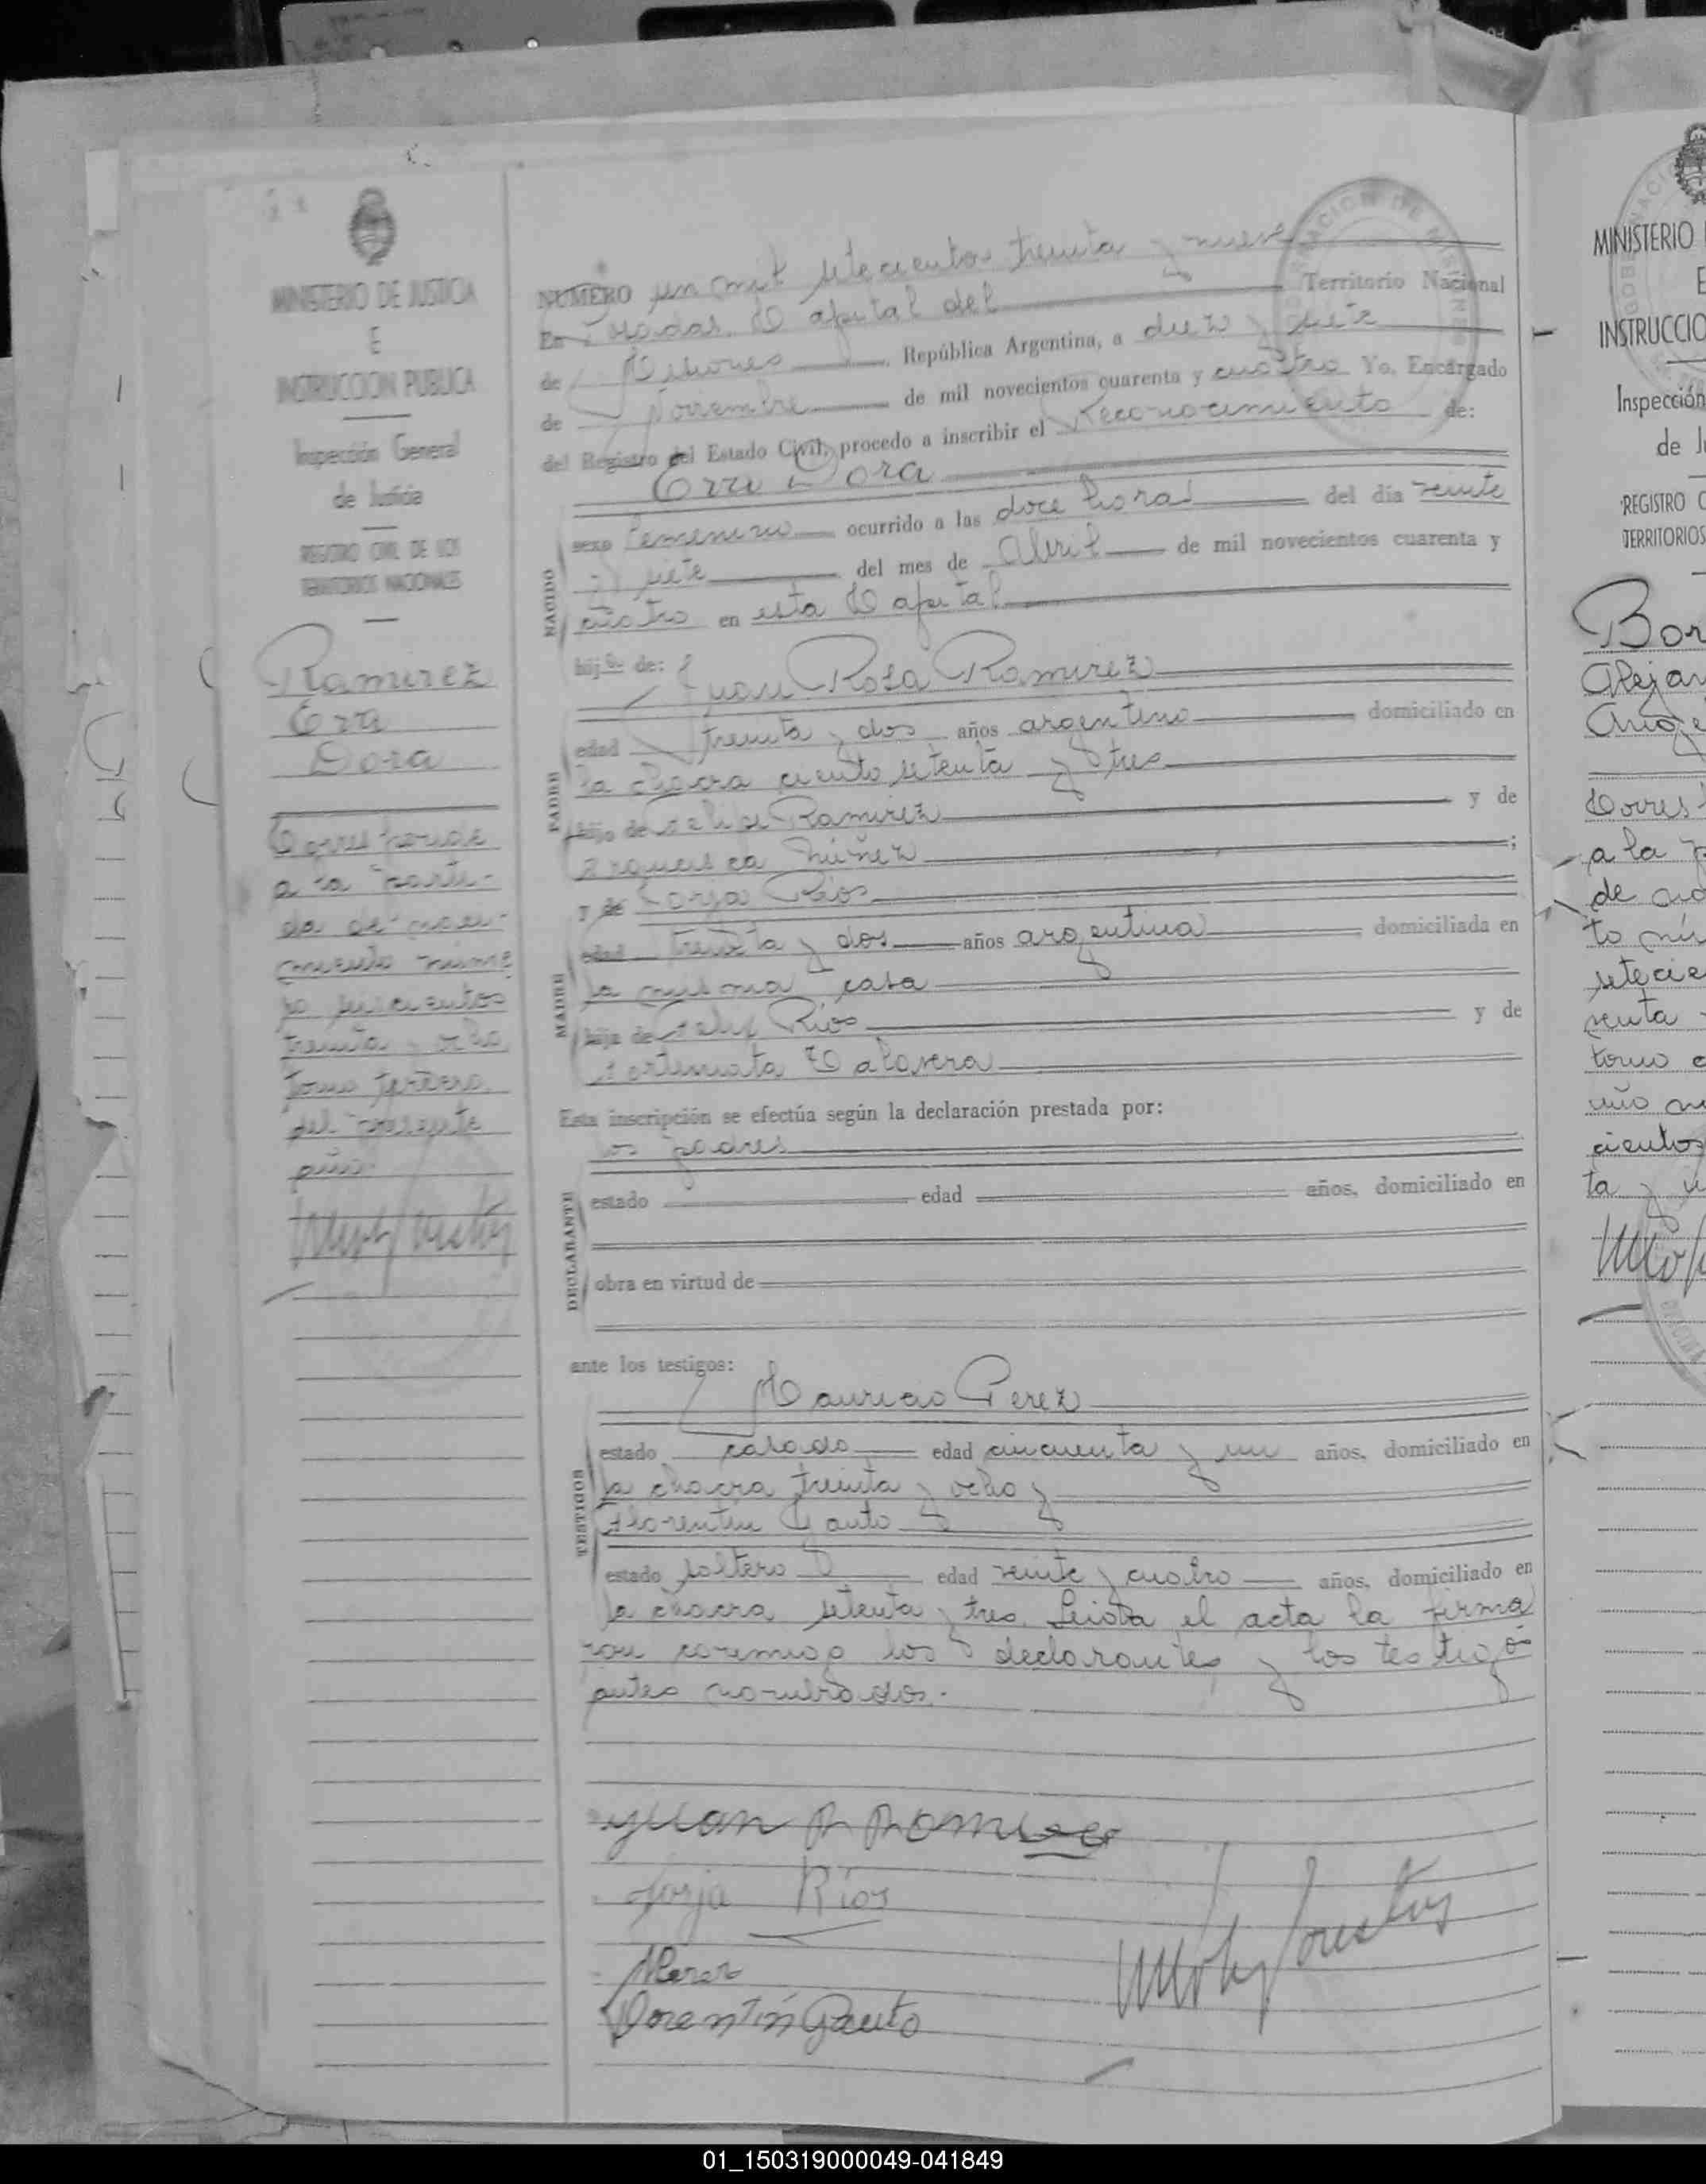 MINISTERIO DE JUSTICIA
E
INSTRUCCION PUBLICA
Inspección General
de Justicia
REGISTRO CIVIL DE LOS
TERRITORIOS NACIONALES
Ramirez
Dora
Corresponde
a la parti-
da de naci-
miento núme
ro seiscientos
treinta y ocho
tomo tercero
del presente
año.
NUMERO un mil setecientos treinta y nueve
En Posadas, Capital del Territorio Nacional
de Misiones, República Argentina, a diez y siete
de Noviembre de mil novecientos cuarenta y cuatro Yo, Encargado
del Registro del Estado Civil, procedo a inscribir el Reconocimiento de:
Dora
NACIDO
sexo femenino ocurrido a las doce horas del día veinte
y siete del mes de Abril de mil novecientos cuarenta y
cuatro en esta Capital
hija de: Juan Rosa Ramirez
PADRE
edad treinta y dos años argentino domiciliado en
la chacra ciento setenta y tres
hijo de Felipe Ramirez y de
Núñez ;
y de Jorja Ríos
MADRE
edad treinta y dos años argentina domiciliada en
la misma casa
hija de Ríos y de
Calavera
Esta inscripción se efectúa según la declaración prestada por:
los padres
DECLARANTE
estado edad años, domiciliado en
obra en virtud de
ante los testigos:
Mauricio Perez
TESTIGOS
estado casado edad cincuenta y un años, domiciliado en
la chacra treinta y ocho y
Florentin Gauto
estado soltero edad veinte y cuatro años, domiciliado en
la chacra setenta y tres. Leida el acta la firma
ron conmigo los declarantes y los testigos
antes nombrados.-
Juan R Ramirez
Jorja Ríos
Perez
Florentín Gauto
MINISTERIO
E
INSTRUCCIO
Inspección
de Ju
REGISTRO C
TERRITORIOS
Bor
Alejan
Corres
a la p
de
to nú
setecie
renta
tomo
año
cientos
ta y
01_150319000049-041849